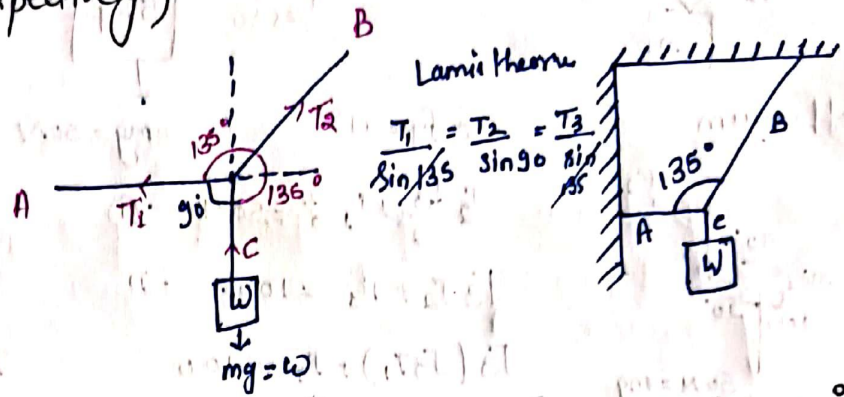 B
Lamis theorem
T₁/sin135 = T₂/sin90 = T₃/sin135
135°
T₂
A
T₁
90°
136°
C
W
mg = W
135°
B
A
C
W